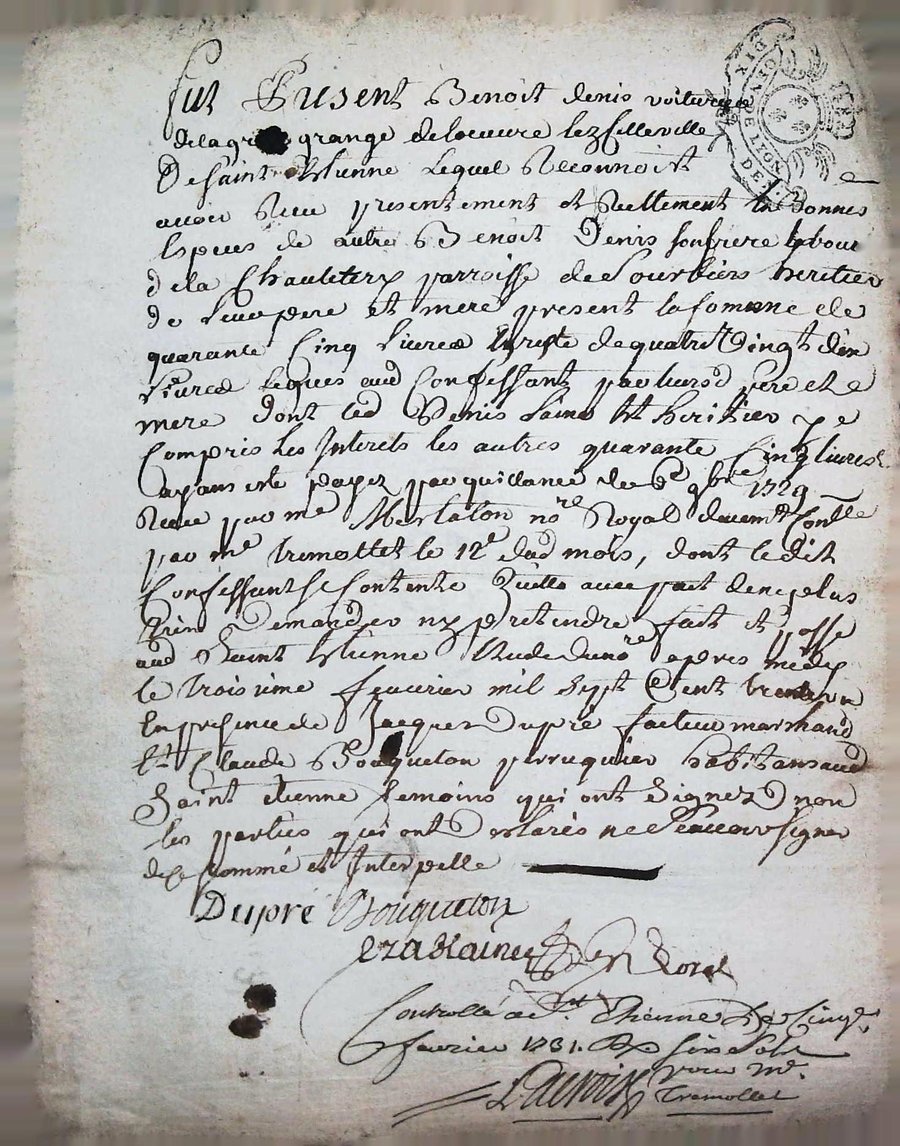 fut Present Benoit denis voiturier
de la grange de loeuvre lez ville
De saint Etienne Lequel Reconnoit
avoir Receu presentement et Reellement en bonnes
Especes de autre Benoit Denis son frere
de la Chauletery parroisse de Sourbiers heritier
de leur pere et mere present la somme de
quarante Cinq Livres du reste de quatre Vingt dix
Livres legues aud Confessant par leursd pere et
mere dont led Denis laine Est heritier y
Compris Les Interets les autres quarante Cinq livres
ayant este payez par quittance du 9bre 1729
Receu par me Mertalon nore Royal duemt Conllé
par me Tremollet le 12e dud mois, dont ledit
Confessant se Contente quitte avec pact de ne plus
Rien Demander ny pretendre fait et passé
aud Saint Etienne Etude du nore apres midy
le troisieme fevrier mil sept Cent trente un
En presence de Jacques Dupré facteur marchand
Et Claude Bouqueton perruquier habitans aud
Saint etienne temoins qui ont Signez non
les parties qui ont declarés ne Scavoir signer
de ce sommé et Interpellé
Dupré Bouqueton
Controllé a St. Ethienne Le Cinqe
fevrier 1731. Rx six Sols
pour Mr.
Tremollet
DIX
GEN. DE LYON
DEN.